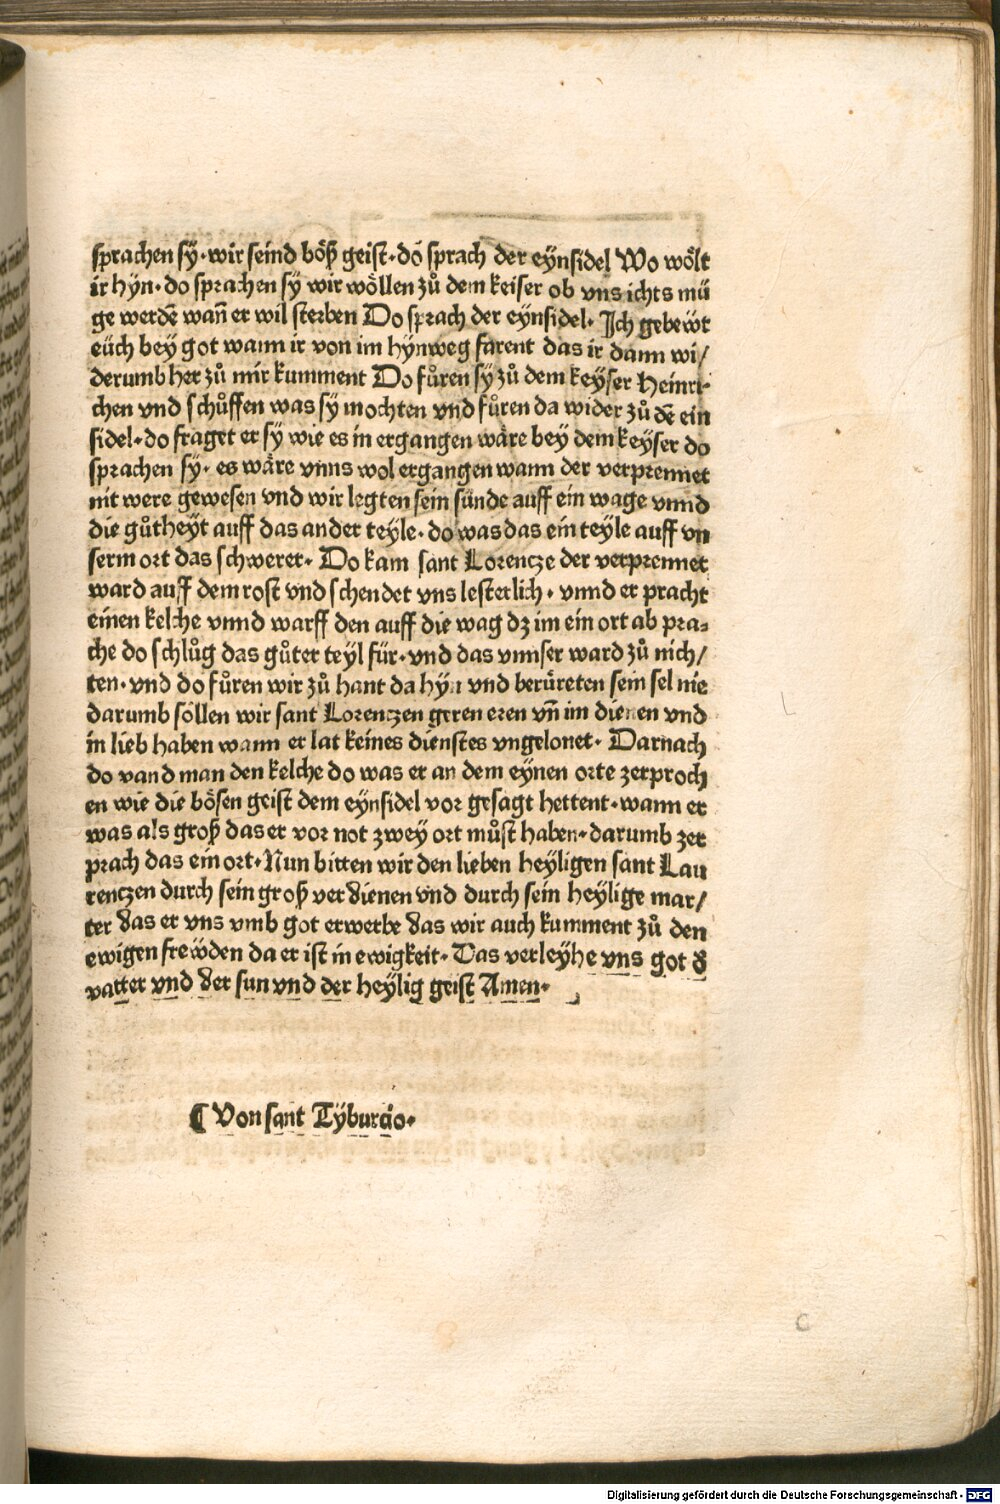 sprachen sÿ·wir seind böß geist·dó sprach der eÿnsidel Wo wölt
ir hÿn·do sprachen sÿ wir wöllen zů dem keiser ob vns ichts mü
ge werdē wañ er wil sterben Do sprach der eÿnsidel· Jch gebeẅt
eüch bey got wann ir von im hÿnweg farent das ir dann wi/
derumb her zů mir kumment Do fůren sÿ zů dem keÿser Heinri-
chen vnd schůffen was sÿ mochten vnd fůren da wider zů dē ein
sidel·do fraget er sÿ wie es in ergangen wäre beÿ dem keÿser do
sprachen sÿ· es wäre vnns wol ergangen wann der verprennet
nit were gewesen vnd wir legten sein sünde auff ein wage vnnd
die gůtheÿt auff das ander teÿle·do was das ein teÿle auff vn
serm ort das schwerer· Do kam sant Lorencze der verprennet
ward auff dem rost vnd schendet vns lesterlich·vnnd er pracht
einen kelche vnnd warff den auff die wag dz im ein ort ab pra-
che do schlůg das gůter teÿl für·vnd das vnnser ward zů nich/
ten·vnd do fůren wir zů hant da hÿn vnd berüreten sein sel nie
darumb söllen wir sant Lorenczen geren eren vñ im dienen vnd
in lieb haben wann er lat keines dienstes vngelonet· Darnach
do vand man den kelche do was er an dem eÿnen orte zerproch
en wie die bösen geist dem eÿnsidel vor gesagt hettent·wann er
was als groß das er vor not zwey ort můst haben·darumb zer
prach das ein ort·Nun bitten wir den lieben heÿligen sant Lau
renczen durch sein groß verdienen vnd durch sein heÿlige mar/
ter das er vns vmb got erwerbe das wir auch kumment zů den
ewigen freẅden da er ist in ewigkeit·Das verleÿhe vns got d̕
vatter vnd der sun vnd der heÿlig geist Amen·
¶ Von sant Tÿburcio·
C
Digitalisierung gefördert durch die Deutsche Forschungsgemeinschaft - DFG